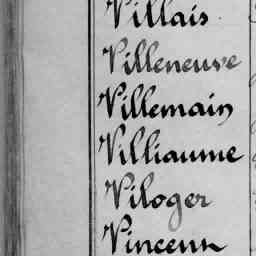 Villais
Villeneuve
Villemain
Villiaume
Viloger
Vincent